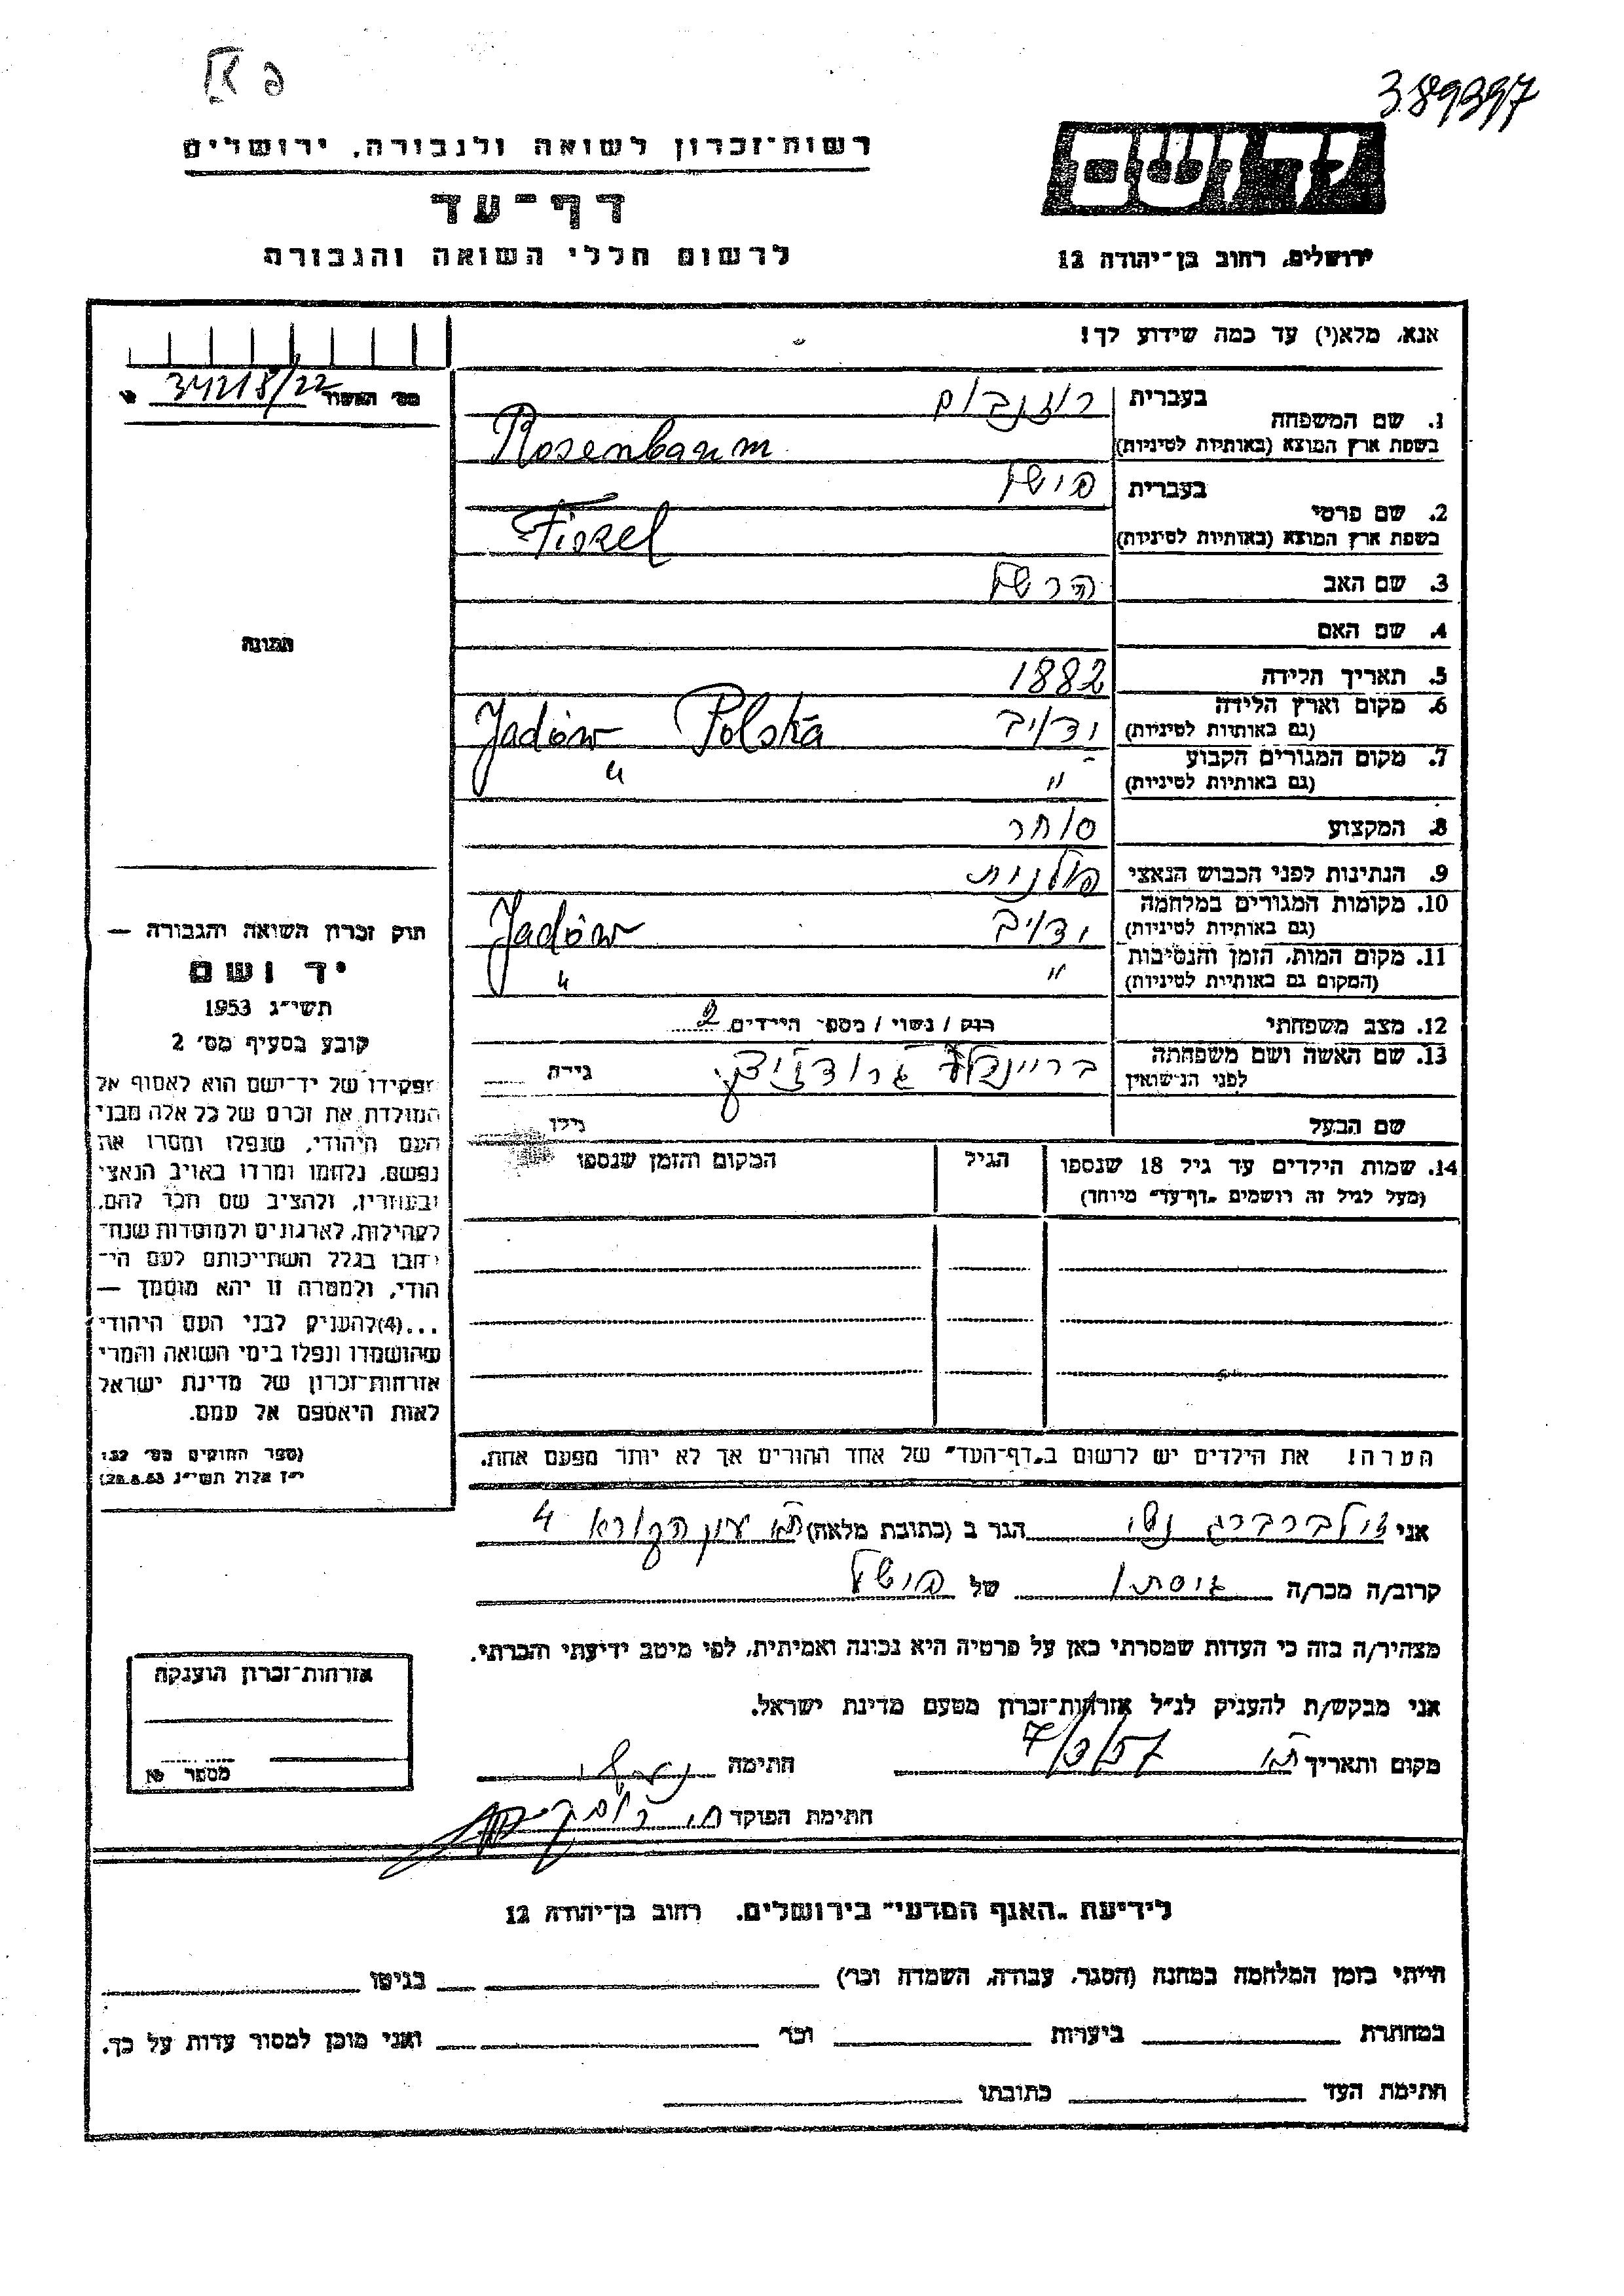 389397
רשות־זכרון לשואה ולגבורה, ירושלים
דף־עד
לרשום חללי השואה והגבורה
יד ושם
ירושלים, רחוב בן־יהודה 12
אנא, מלא(י) עד כמה שידוע לך!
מס׳ האשור 34218/22
1. שם המשפחה
בעברית רוזנבוים
בשפת ארץ המוצא (באותיות לטיניות) Rosenbaum
2. שם פרטי
בעברית פישל
בשפת ארץ המוצא (באותיות לטיניות) Fiszel
3. שם האב הרשל
4. שם האם
5. תאריך הלידה 1882
6. מקום וארץ הלידה
(גם באותיות לטיניות) ידוב Jadów Polska
7. מקום המגורים הקבוע
(גם באותיות לטיניות) " "
8. המקצוע סוחר
9. הנתינות לפני הכבוש הנאצי פולנית
10. מקומות המגורים במלחמה
(גם באותיות לטיניות) ידוב Jadów
11. מקום המות, הזמן והנסיבות
(המקום גם באותיות לטיניות) " "
12. מצב משפחתי רווק / נשוי / מספר הילדים 2
13. שם האשה ושם משפחתה
לפני הנישואין ביילה גילה
שם הבעל גילו
14. שמות הילדים עד גיל 18 שנספו
(מעל לגיל זה רושמים „דף־עד״ מיוחד)
הגיל
המקום והזמן שנספו
הערה! את הילדים יש לרשום ב„דף־העד״ של אחד ההורים אך לא יותר מפעם אחת.
תמונה
חוק זכרון השואה והגבורה —
יד ושם
תשי״ג 1953
קובע בסעיף מס׳ 2
תפקידו של יד־ושם הוא לאסוף אל
המולדת את זכרם של כל אלה מבני
העם היהודי, שנפלו ומסרו את
נפשם, נלחמו ומרדו באויב הנאצי
ובעוזריו, ולהציב שם וזכר להם,
לקהילות, לארגונים ולמוסדות שנח־
רבו בגלל השתייכותם לעם הי־
הודי, ולמטרה זו יהא מוסמך —
...(4)להעניק לבני העם היהודי
שהושמדו ונפלו בימי השואה והמרי
אזרחות־זכרון של מדינת ישראל
לאות היאספם אל עמם.
(ספר החוקים מס׳ 132
י״ז אלול תשי״ג 28.8.53)
אני זילברברג הגר ב (כתובת מלאה) ת״א עין הקורא 4
קרוב/ה מכר/ה גיסתו של פישל
מצהיר/ה בזה כי העדות שמסרתי כאן על פרטיה היא נכונה ואמיתית, לפי מיטב ידיעתי והכרתי.
אני מבקש/ת להעניק לנ״ל אזרחות־זכרון מטעם מדינת ישראל.
מקום ותאריך ת״א 7/3/57 חתימה
חתימת הפוקד
אזרחות־זכרון הוענקה
מספר
לידיעת „האגף המדעי״ בירושלים, רחוב בן־יהודה 12
הייתי בזמן המלחמה במחנה (הסגר, עבודה, השמדה וכו׳) בגיטו
במחתרת ביערות וכו׳ ואני מוכן למסור עדות על כך.
חתימת העד כתובתו